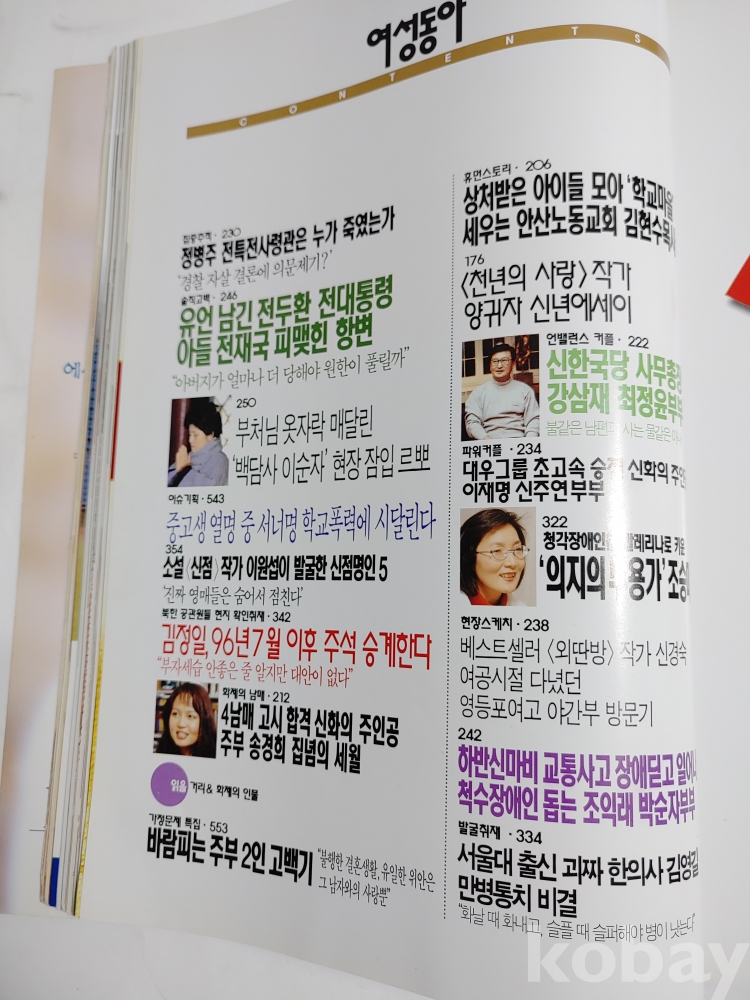 여성동아
CONTENTS
집중추적 · 230
정병주 전특전사령관은 누가 죽였는가
'경찰 자살 결론에 의문제기?'
솔직고백 · 246
유언 남긴 전두환 전대통령
아들 전재국 피맺힌 항변
"아버지가 얼마나 더 당해야 원한이 풀릴까"
250
부처님 옷자락 매달린
'백담사 이순자' 현장 잠입 르뽀
이슈기획 · 543
중고생 열명 중 서너명 학교폭력에 시달린다
354
소설 〈신점〉 작가 이원섭이 발굴한 신점명인 5
'진짜 영매들은 숨어서 점친다'
북한 공관원들 현지 확인취재 · 342
김정일, 96년 7월 이후 주석 승계한다
"부자세습 안좋은 줄 알지만 대안이 없다"
화제의 남매 · 212
4남매 고시 합격 신화의 주인공
주부 송경희 집념의 세월
읽을거리 & 화제의 인물
가정문제 특집 · 553
바람피는 주부 2인 고백기
"불행한 결혼생활, 유일한 위안은
그 남자와의 사랑뿐"
휴먼스토리 · 206
상처받은 아이들 모아 '학교마을'
세우는 안산노동교회 김현수목사
176
〈천년의 사랑〉 작가
양귀자 신년에세이
언밸런스 커플 · 222
신한국당 사무총장
강삼재 최정윤부부
불같은 남편과 사는 물같은
파워커플 · 234
대우그룹 초고속 승진 신화의 주인
이재명 신주연부부
322
청각장애인 발레리나로 키운
'의지의 무용가' 조승미
현장스케치 · 238
베스트셀러 〈외딴방〉 작가 신경숙
여공시절 다녔던
영등포여고 야간부 방문기
242
하반신마비 교통사고 장애딛고 일어나
척수장애인 돕는 조익래 박순자부부
발굴취재 · 334
서울대 출신 괴짜 한의사 김영길
만병통치 비결
"화날 때 화내고, 슬플 때 슬퍼해야 병이 낫는다"
kobay